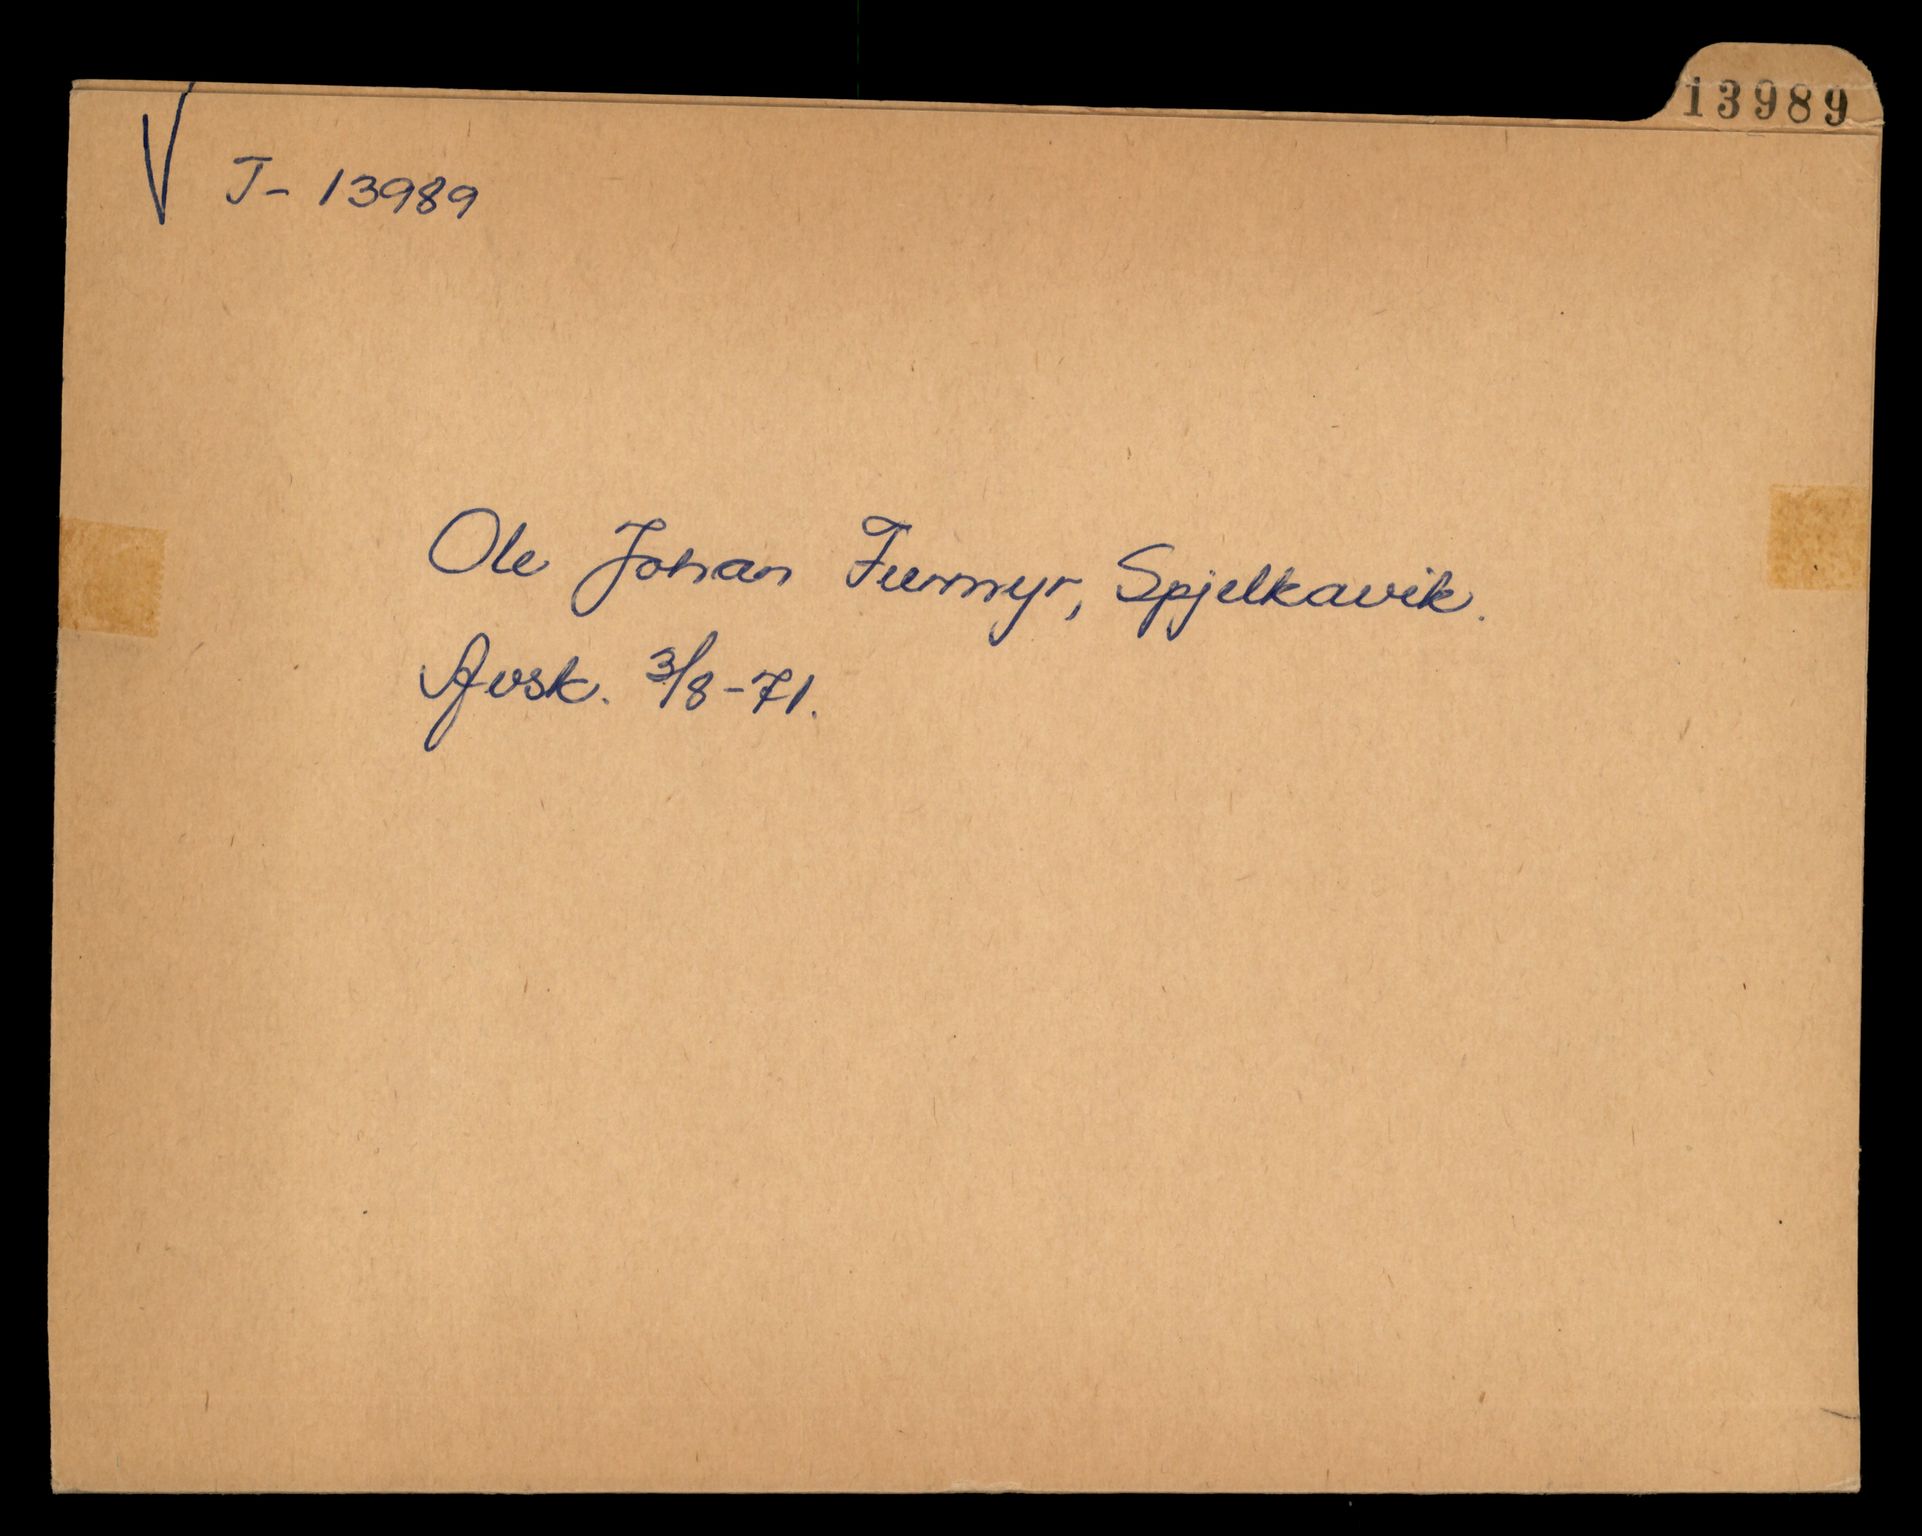 13989
J- 13989
Ole Johan Furmyr, Spjelkavik.
Avsk. 3/8-71.